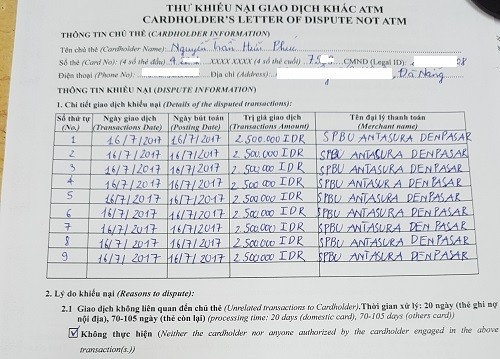 THƯ KHIẾU NẠI GIAO DỊCH KHÁC ATM
CARDHOLDER'S LETTER OF DISPUTE NOT ATM
THÔNG TIN CHỦ THẺ (CARDHOLDER INFORMATION)
Tên chủ thẻ (Cardholder Name): Nguyễn Trần Hữu Phúc
Số thẻ (Card No): (4 số đầu) 9 XXXX XXXX (4 số cuối) 75 CMND (Legal ID): 08
Điện thoại (Phone No): Địa chỉ (Address): , Đà Nẵng
THÔNG TIN KHIẾU NẠI (DISPUTE INFORMATION)
1. Chi tiết giao dịch khiếu nại (Details of the disputed transactions):
Số thứ tự Ngày giao dịch Ngày bút toán Trị giá giao dịch Tên đại lý thanh toán
(No.) (Transactions Date) (Posting Date) (Transactions Amount) (Merchant name)
1 16/7/2017 16/7/2017 2.500.000 IDR SPBU ANTASURA DENPASAR
2 16/7/2017 16/7/2017 2.500.000 IDR SPBU ANTASURA DENPASAR
3 16/7/2017 16/7/2017 2.500.000 IDR SPBU ANTASURA DENPASAR
4 16/7/2017 16/7/2017 2.500.000 IDR SPBU ANTASURA DENPASAR
5 16/7/2017 16/7/2017 2.500.000 IDR SPBU ANTASURA DENPASAR
6 16/7/2017 16/7/2017 2.500.000 IDR SPBU ANTASURA DENPASAR
7 16/7/2017 16/7/2017 2.500.000 IDR SPBU ANTASURA DENPASAR
8 16/7/2017 16/7/2017 2.500.000 IDR SPBU ANTASURA DENPASAR
9 16/7/2017 16/7/2017 2.500.000 IDR SPBU ANTASURA DENPASAR
2. Lý do khiếu nại (Reasons to dispute):
2.1 Giao dịch không liên quan đến chủ thẻ (Unrelated transactions to Cardholder).Thời gian xử lý: 20 ngày (thẻ ghi nợ
nội địa), 70-105 ngày (thẻ còn lại) (processing time: 20 days (domestic card), 70-105 days (others card))
☑ Không thực hiện (Neither the cardholder nor anyone authorized by the cardholder engaged in the above
transaction(s.))